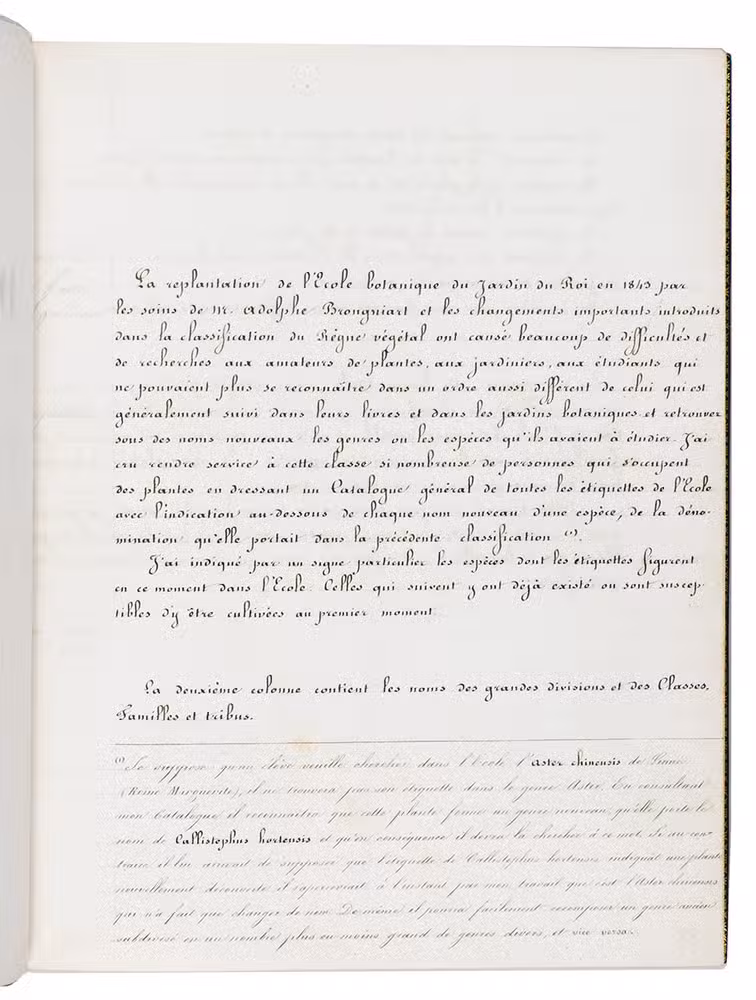 La replantation de l'Ecole botanique du Jardin du Roi en 1843 par
les soins de Mr. Adolphe Brongniart et les changements importants introduits
dans la classification du Règne végétal ont causé beaucoup de difficultés et
de recherches aux amateurs de plantes, aux jardiniers, aux étudiants qui
ne pouvaient plus se reconnaître dans un ordre aussi différent de celui qui est
généralement suivi dans leurs livres et dans les jardins botaniques et retrouver
sous des noms nouveaux les genres ou les espèces qu'ils avaient à étudier. J'ai
cru rendre service à cette classe si nombreuse de personnes qui s'occupent
des plantes en dressant un Catalogue général de toutes les étiquettes de l'Ecole
avec l'indication au-dessous de chaque nom nouveau d'une espèce, de la déno-
mination qu'elle portait dans la précédente classification (1).
J'ai indiqué par un signe particulier les espèces dont les étiquettes figurent
en ce moment dans l'Ecole. Celles qui suivent y ont déjà existé ou sont suscep-
tibles d'y être cultivées au premier moment.
La deuxième colonne contient les noms des grandes divisions et des Classes,
Familles et tribus.
(1) Je suppose qu'un élève veuille chercher dans l'Ecole l'Aster chinensis de Linné
(Reine Marguerite), il ne trouvera pas son étiquette dans le genre Aster. En consultant
mon Catalogue il reconnaîtra que cette plante forme un genre nouveau, qu'elle porte le
nom de Callistephus hortensis et qu'en conséquence il devra la chercher à ce mot. Si au con-
traire il lui arrivait de supposer que l'étiquette de Callistephus hortensis indiquât une plante
nouvellement découverte, il s'apercevrait à l'instant par mon travail que c'est l'Aster chinensis
qui n'a fait que changer de nom. De même il pourra facilement recomposer un genre ancien
subdivisé en un nombre plus ou moins grand de genres divers, et vice versa.